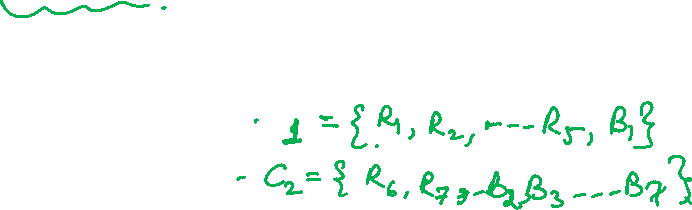 1 = {R1, R2, ---- R5, B1}
- C2 = {R6, R7, -- B2, B3 ---- B7}